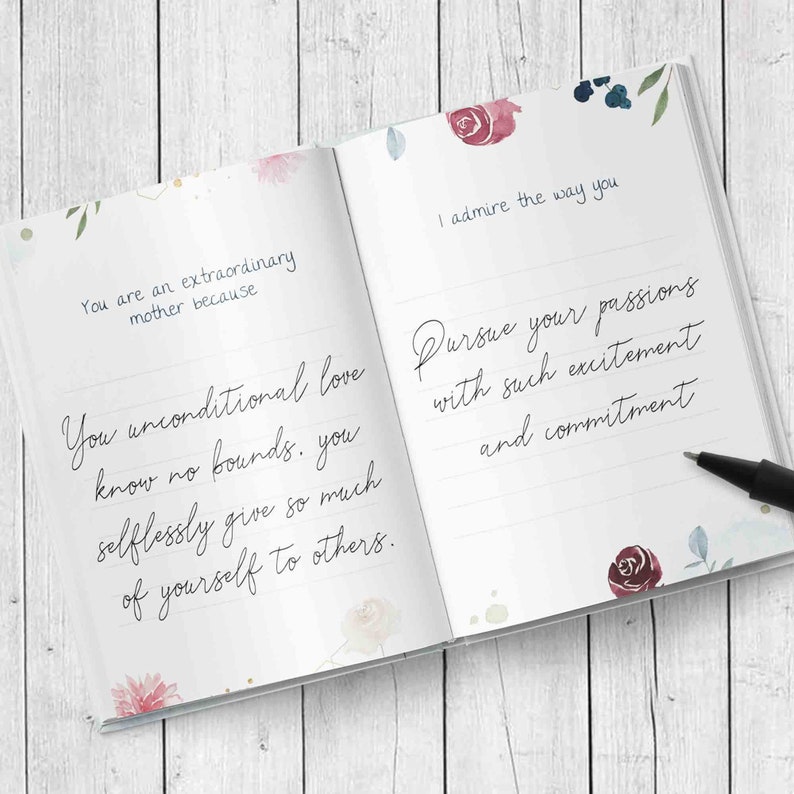 You are an extraordinary
mother because
You unconditional love
know no bounds. you
selflessly give so much
of yourself to others.
I admire the way you
Pursue your passions
with such excitement
and commitment